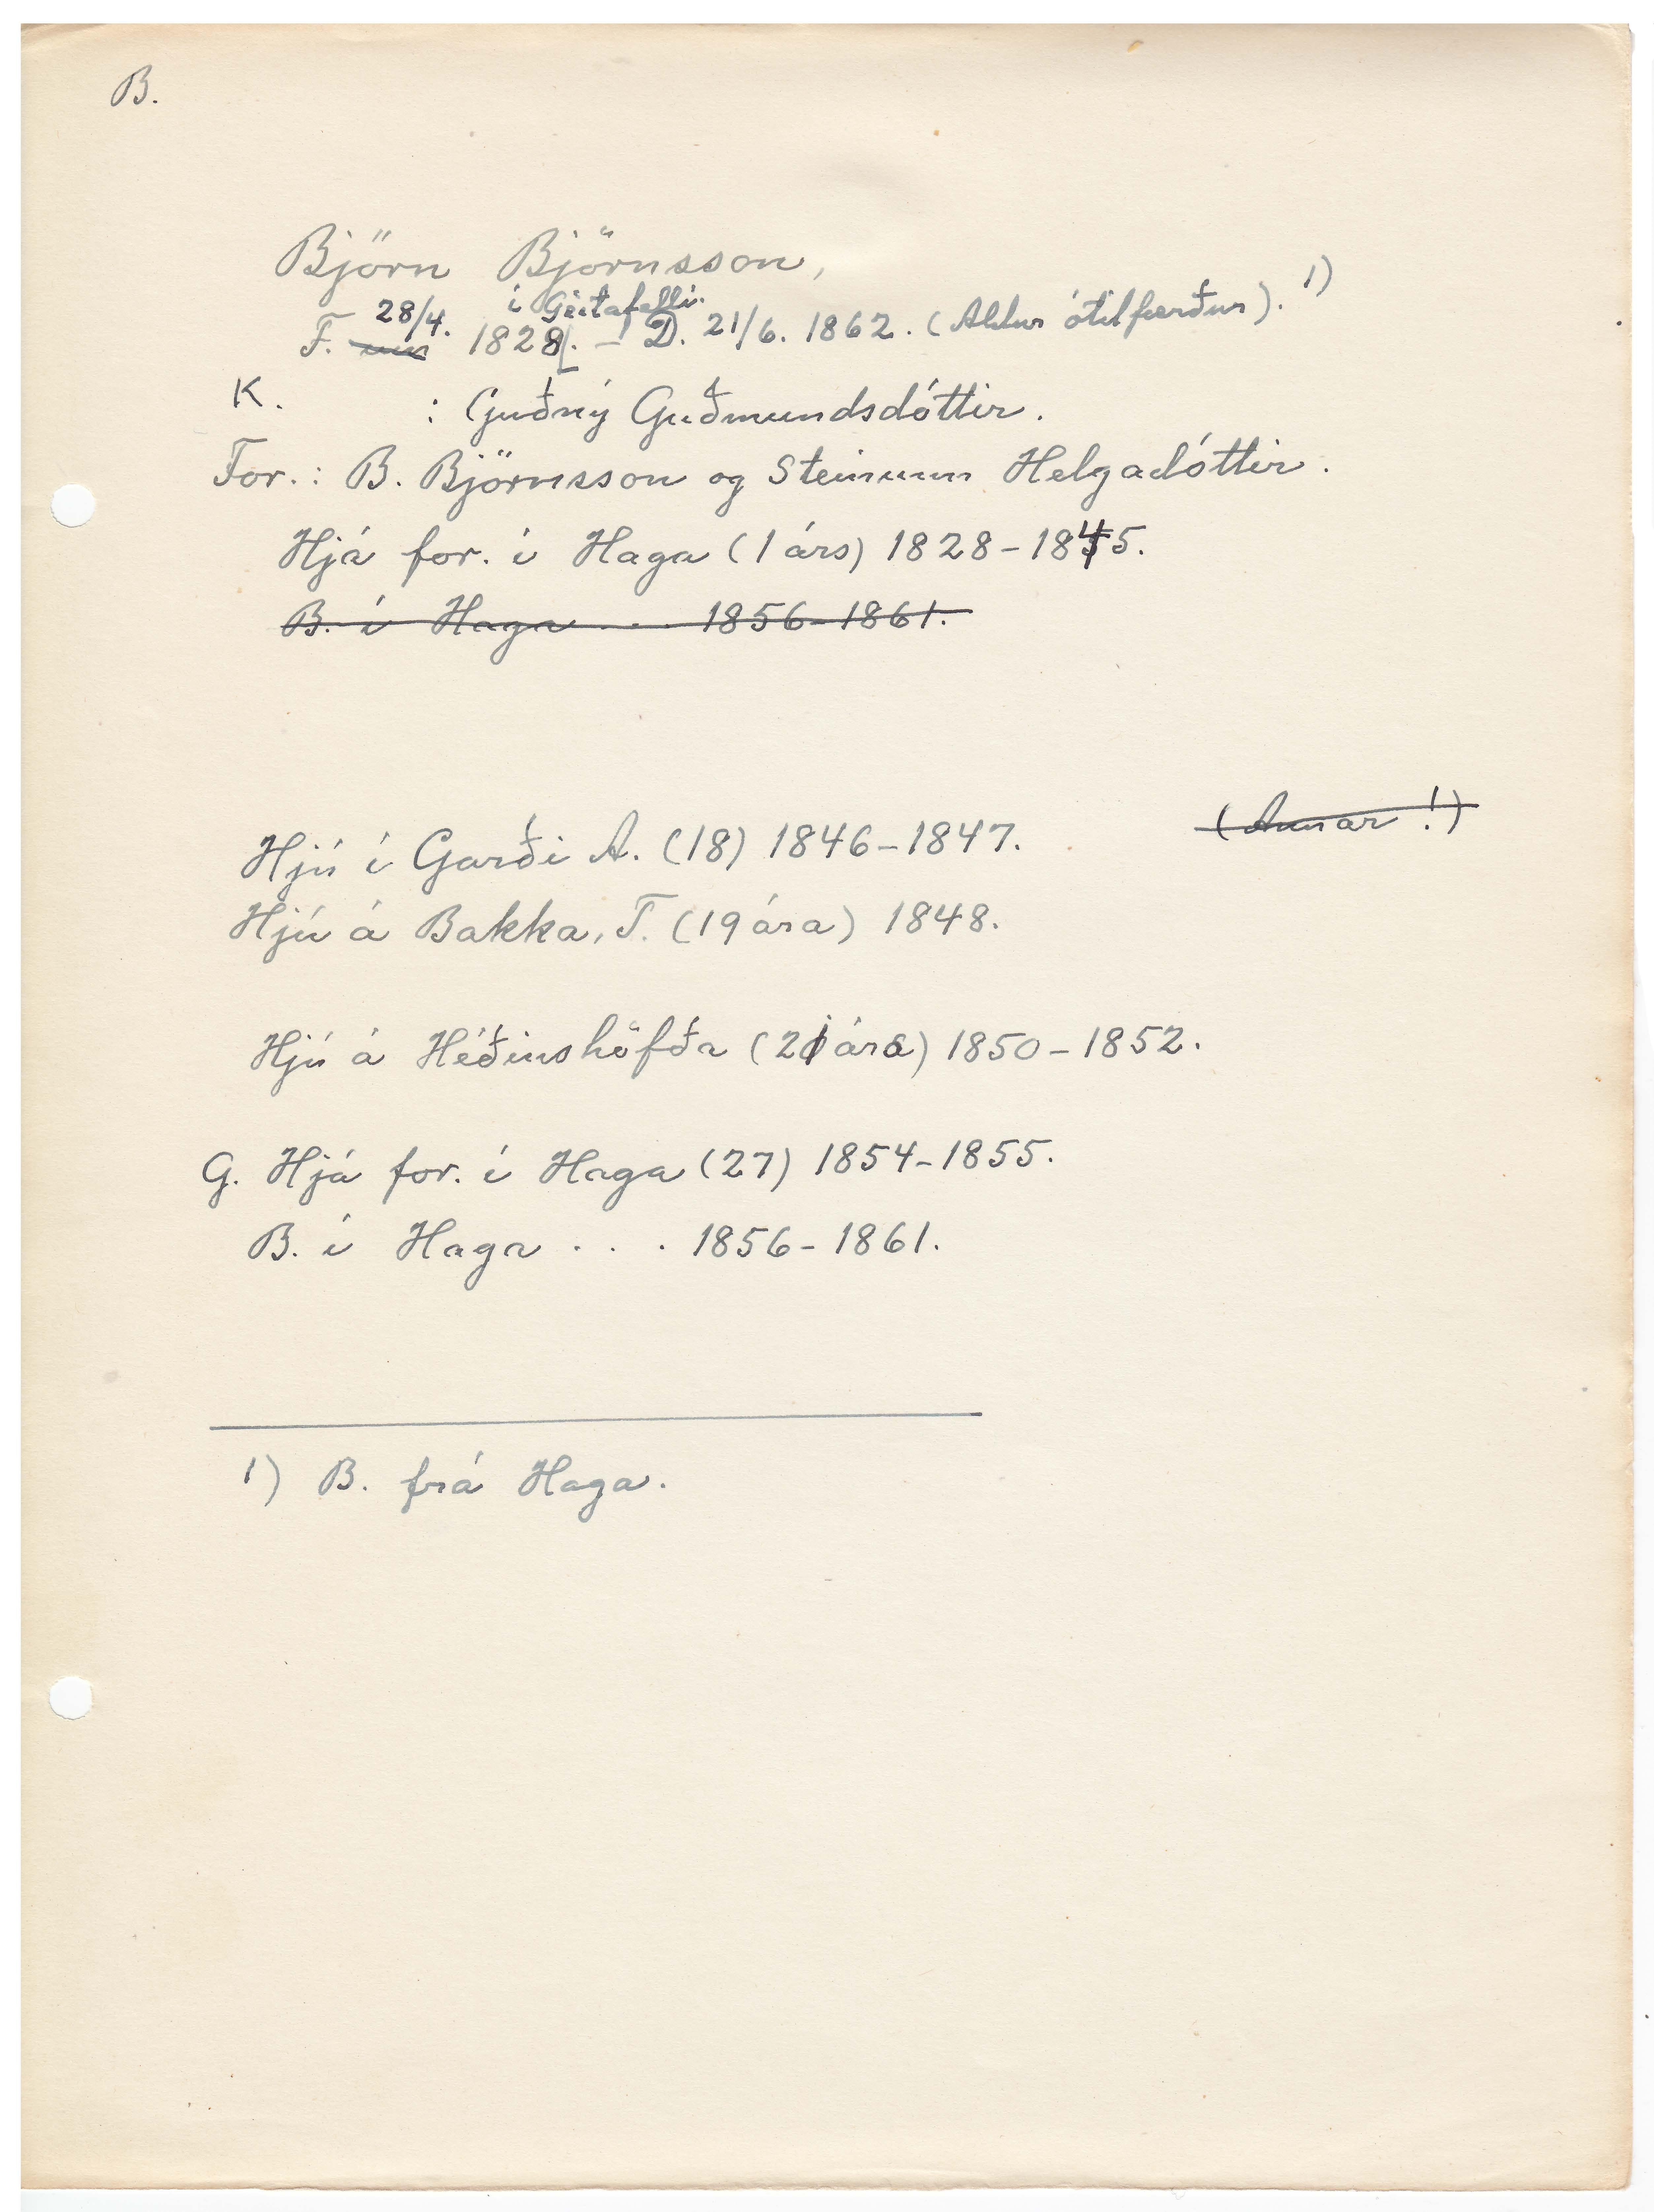 B.
Björn Björnsson,
28/4. í Geitafelli.
F. um 1828. – D. 21/6. 1862. (Aldur ótilfærður). 1)
K. : Guðný Guðmundsdóttir.
For.: B. Björnsson og Steinunn Helgadóttir.
Hjá for. í Haga (1 árs) 1828-1845.
B. í Haga . . . 1856-1861.
(Annar !)
Hjú í Garði A. (18) 1846-1847.
Hjú á Bakka, T. (19 ára) 1848.
Hjú á Héðinshöfða (21 árs) 1850-1852.
G. Hjá for. í Haga (27) 1854-1855.
B. í Haga . . . 1856-1861.
1) B. frá Haga.